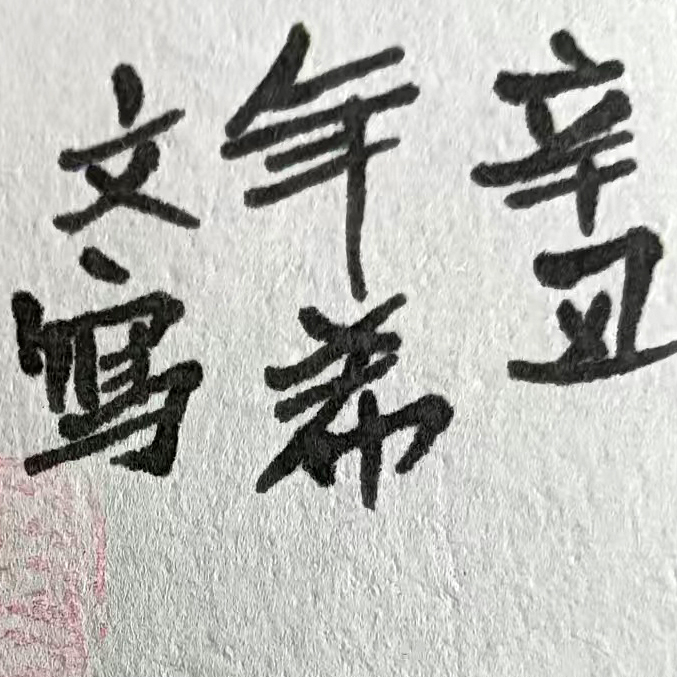 辛丑
年希
文寫